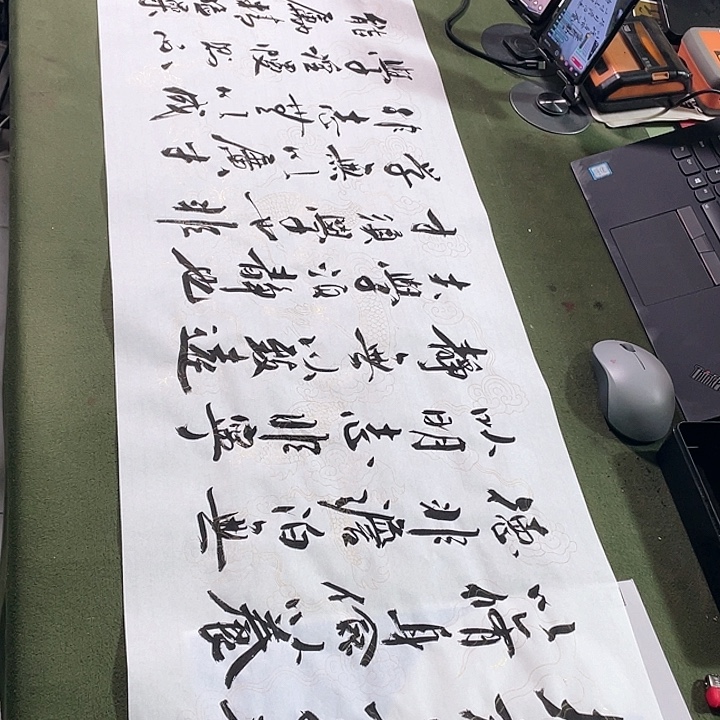 以脩身儉以養
德非澹泊無
以明志非寧
靜無以致遠
夫學須靜也
才須學也非
學無以廣才
非志無以成
學淫慢則不
能勵精險躁